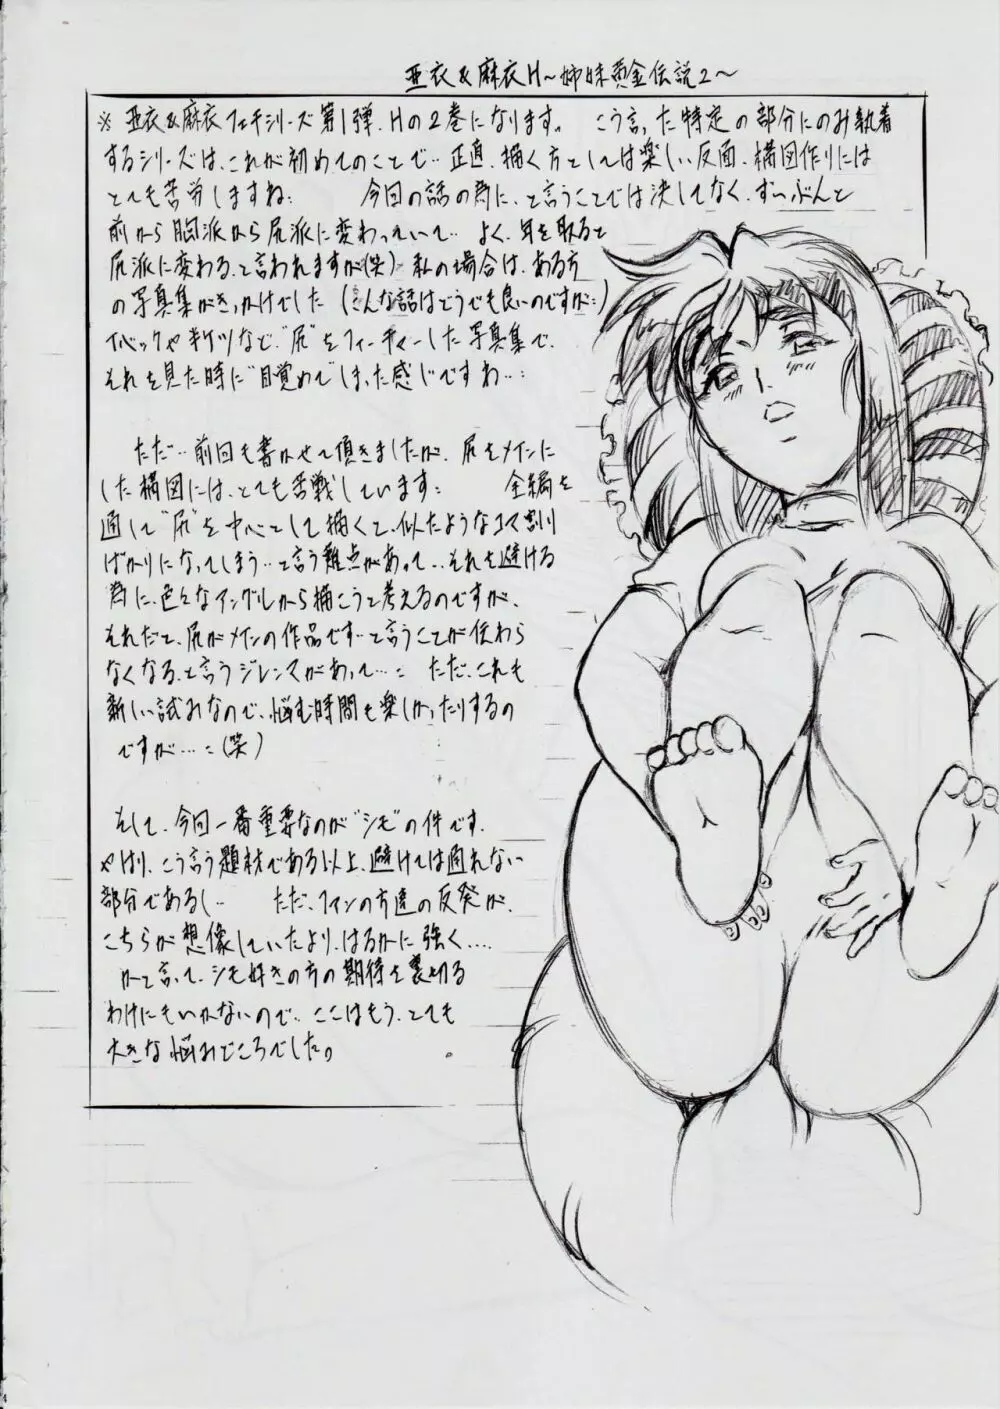 亜衣&麻衣H～姉妹黄金伝説2～
※ 亜衣&麻衣フェチシリーズ第1弾、Hの2巻になります。 こう言った特定の部分にのみ執着
するシリーズは、これが初めてのことで… 正直、描く方としては楽しい反面、構図作りには
とても苦労しますね: 今回の話の為に、と言うことでは決してなく、ずいぶんと
前から胸派から尻派に変わっていて… よく、年を取ると
尻派に変わる、と言われますが(笑) 私の場合は、ある方
の写真集がきっかけでした (こんな話はどうでも良いのですが:)
Tバックや半ケツなど、"尻"をフィーチャーした写真集で、
それを見た時に"目覚めて"しまった感じですね…:
ただ…前回も書かせて頂きましたが、尻をメインに
した構図には、とても苦戦しています: 全編を
通して"尻"を中心として描くと、似たようなコマ割り
ばかりになってしまう…と言う難点があって… それを避ける
為に、色々なアングルから描こうと考えるのですが、
それだと、尻がメインの作品です…と言うことが伝わら
なくなる、と言うジレンマがあって…: ただ、これも
新しい試みなので、悩む時間も楽しかったりするの
ですが…:(笑)
そして、今回一番重要なのが"シモ"の件です。
やはり、こう言う題材である以上、避けては通れない
部分であるし… ただ、ファンの方達の反発が、
こちらが想像していたより、はるかに強く….
かと言って、シモ好きの方の期待を裏切る
わけにもいかないので、ここはもう、とても
大きな悩みどころでした。
4